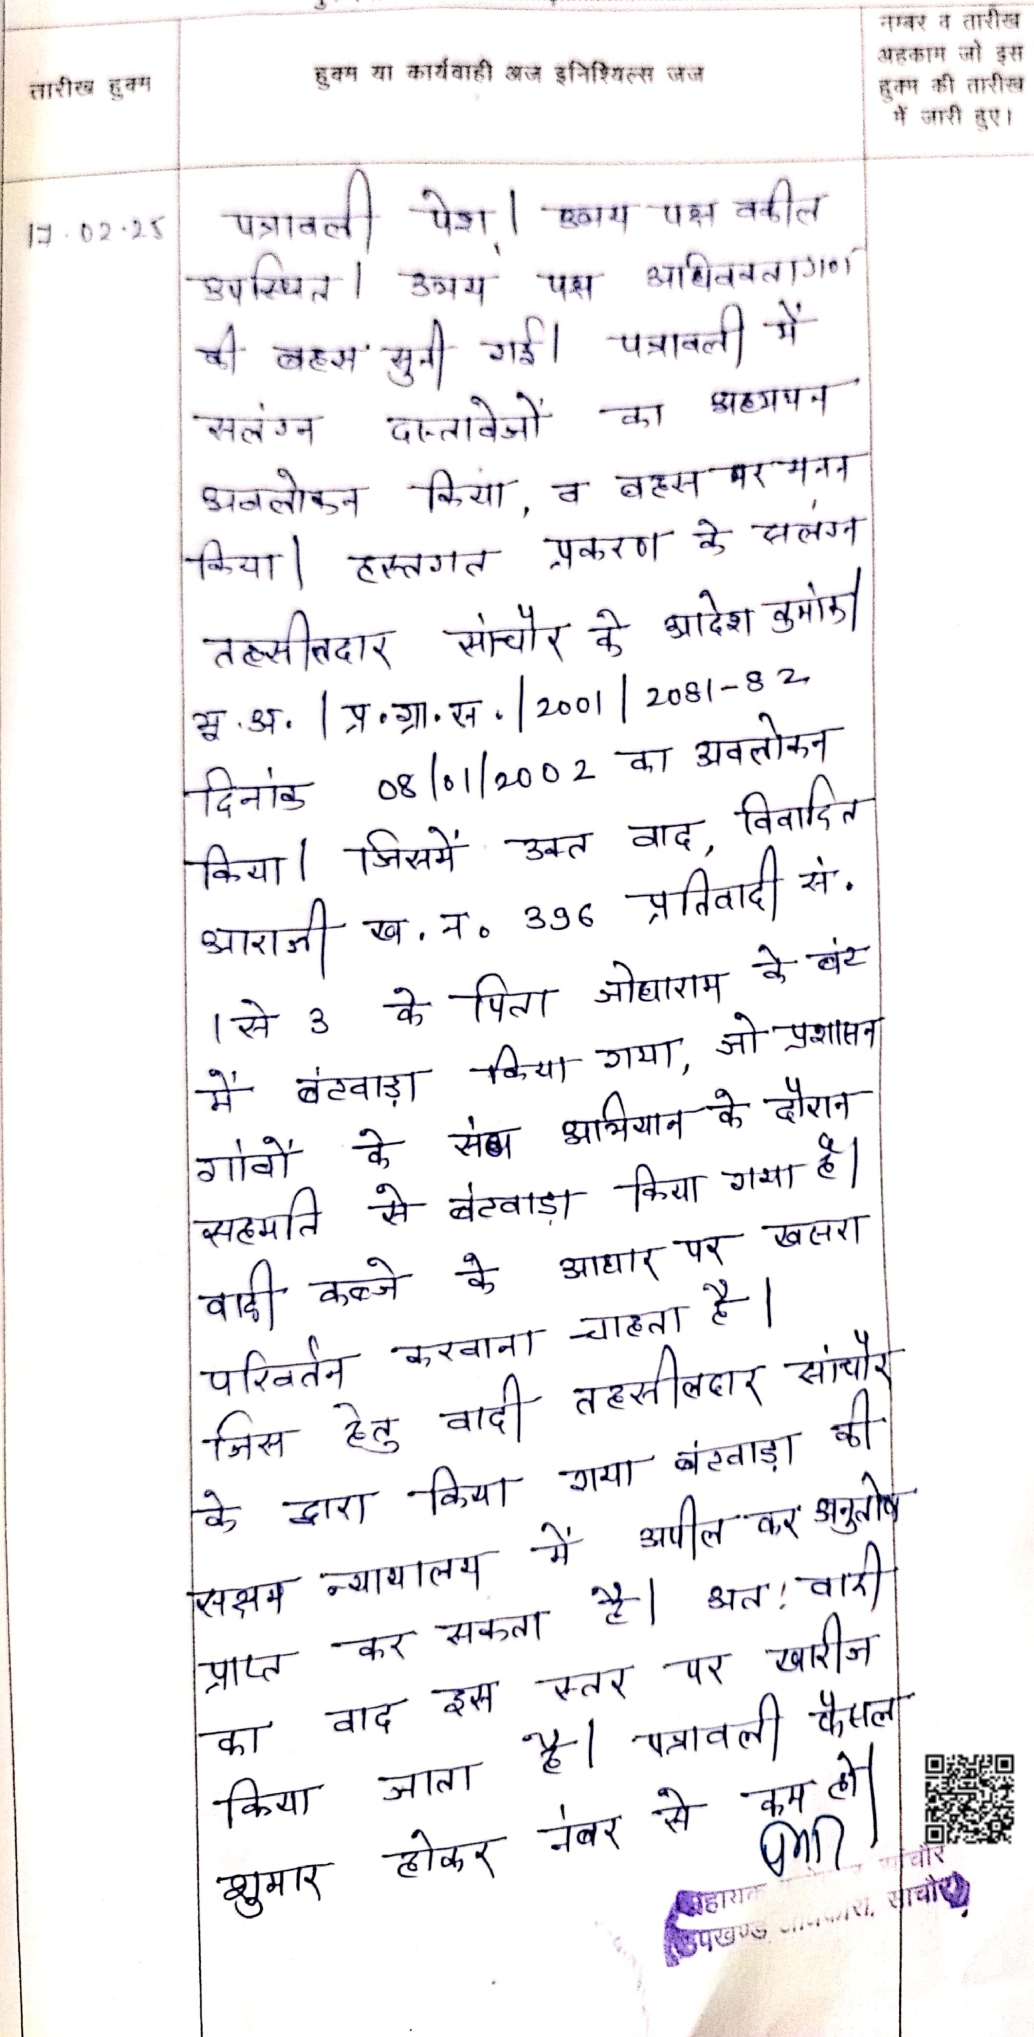 तारीख हुक्म
हुक्म या कार्यवाही अज इनिशियल्स जज
नम्बर व तारीख
अहकाम जो इस
हुक्म की तारीख
में जारी हुए।
17.02.25
पत्रावली पेश। उभय पक्ष वकील
उपस्थित। उभय पक्ष अधिवक्तागण
की बहस सुनी गई। पत्रावली में
सलंग्न दास्तावेजों का अध्ययन
अवलोकन किया, व बहस पर मनन
किया। हस्तगत प्रकरण के सलंग्न
तहसीलदार सांचौर के आदेश क्रमांक/
भू.अ./प्र.ग्रा.स./2001/2081-82
दिनांक 08/01/2002 का अवलोकन
किया। जिसमें उक्त वाद, विवादित
आराजी ख.न. 396 प्रतिवादी सं.
1 से 3 के पिता जोधाराम के बंट
में बंटवाड़ा किया गया, जो प्रशासन
गांवों के संघ अभियान के दौरान
सहमति से बंटवाड़ा किया गया है।
वादी कब्जे के आधार पर खसरा
परिवर्तन करवाना चाहता है।
जिस हेतु वादी तहसीलदार सांचौर
के द्वारा किया गया बंटवाड़ा की
सक्षम न्यायालय में अपील कर अनुतोष
प्राप्त कर सकता है। अतः वादी
का वाद इस स्तर पर खारीज
किया जाता है। पत्रावली फैसल
शुमार होकर नंबर से कम हो।
सांचौर
उपखण्ड सांचौर